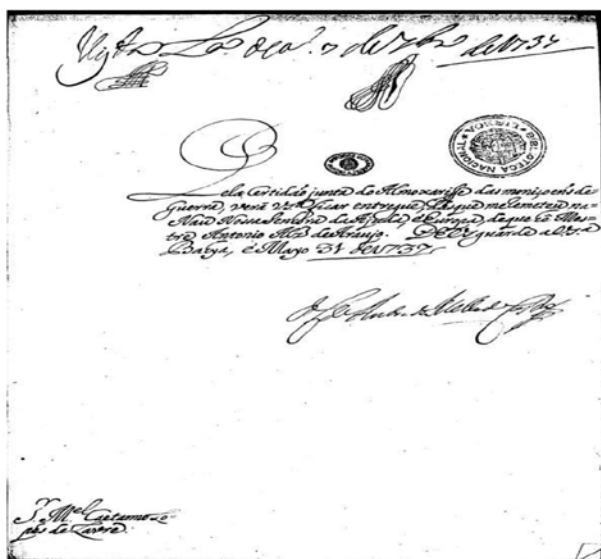 Vista Lxa. occa. 7 de 7bro de 1737
BIBLIOTHECA NACIONAL LISBOA
Pela Certidão junta do Almoxarife das moniçoens de
guerra, verá VSa. ficar entregue, do que me remeteu na
Nau Nossa Senhora da Ajuda, e de que hé Mes-
tre Antonio Alz de Araujo. Ds. guarde a V.Sa.
Bahya, e Mayo 31 de 1737
Sr. Mel. Caetanno Lo-
pes de Lavre.